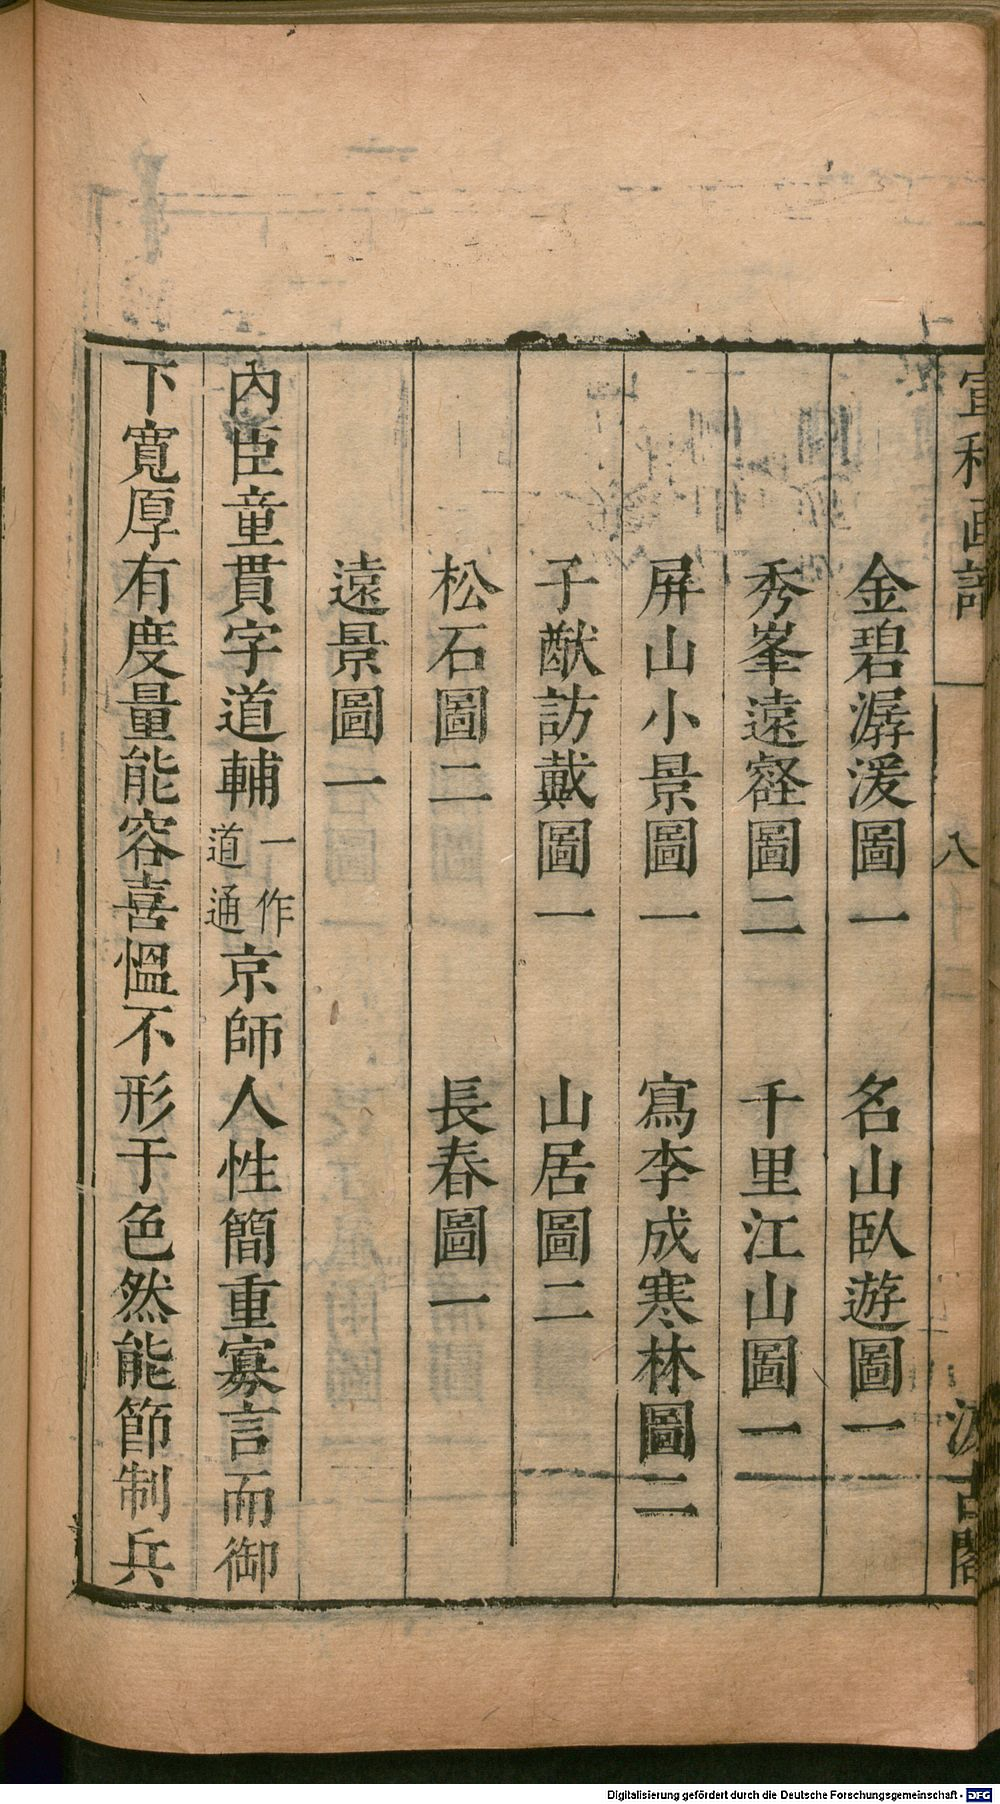 宣和畫譜 八 汲古閣
金碧潺湲圖一 名山臥遊圖一
秀峯遠壑圖二 千里江山圖一
屏山小景圖一 寫李成寒林圖二
子猷訪戴圖一 山居圖二
松石圖二 長春圖一
遠景圖一
內臣童貫字道輔一作道通京師人性簡重寡言而御
下寬厚有度量能容喜慍不形于色然能節制兵
Digitalisierung gefördert durch die Deutsche Forschungsgemeinschaft - DFG